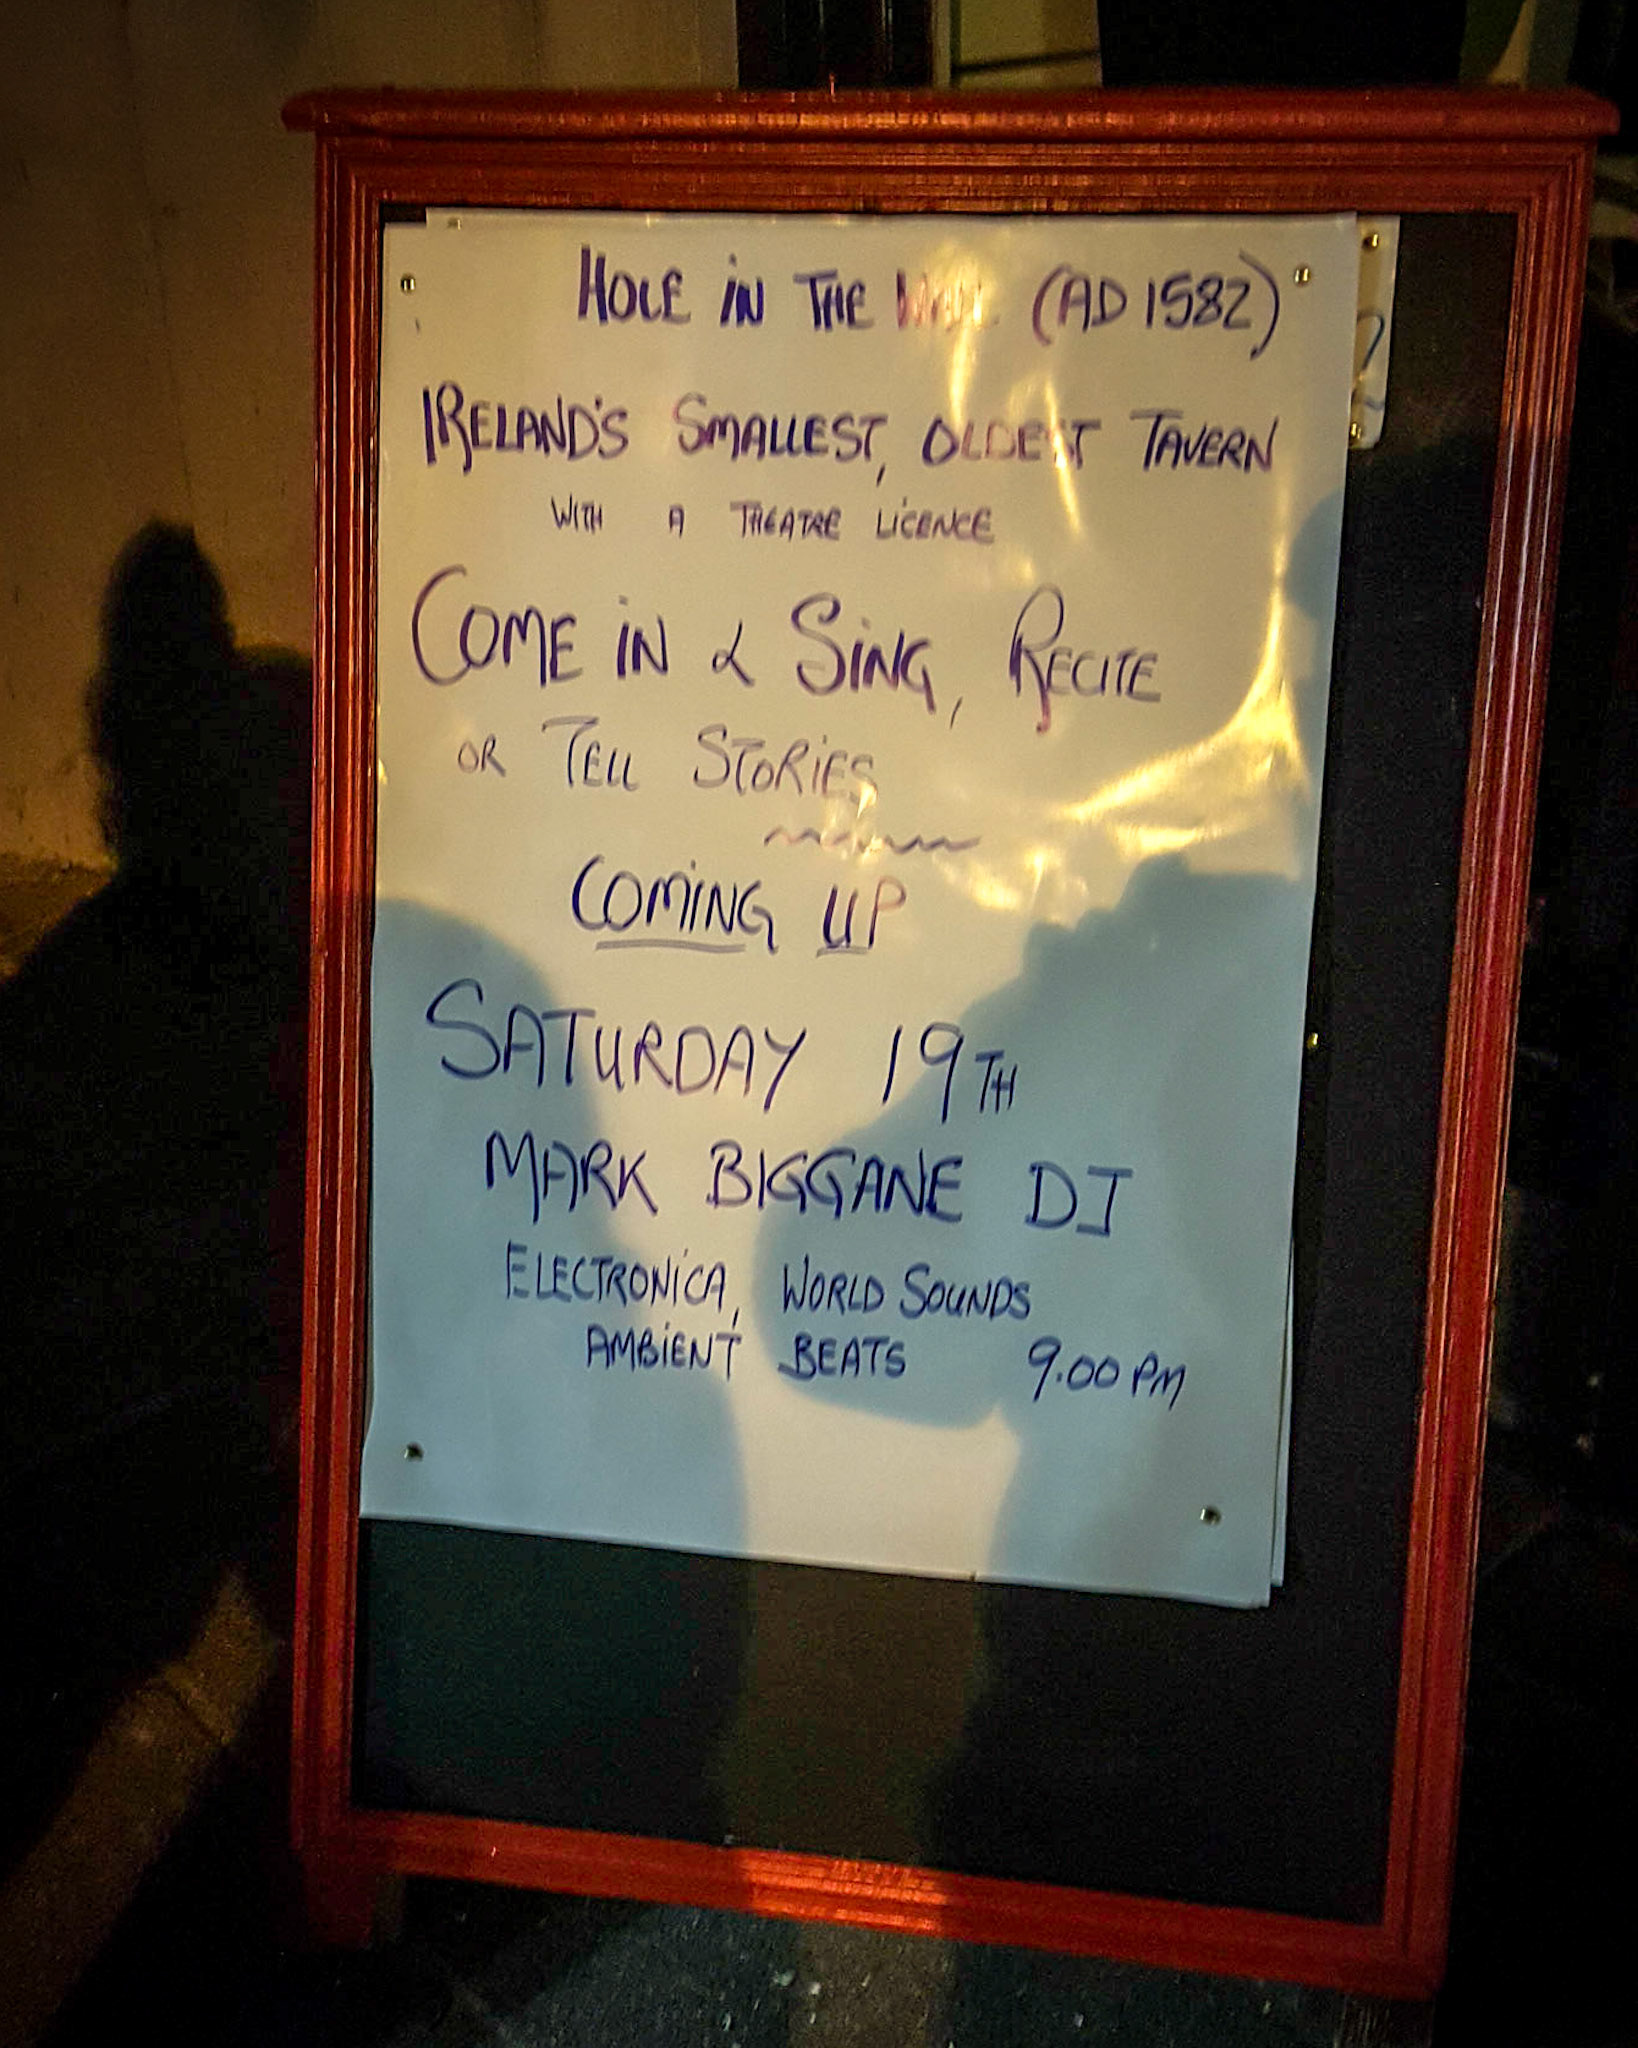 HOLE IN THE WALL (AD 1582)
IRELAND'S SMALLEST, OLDEST TAVERN
WITH A THEATRE LICENCE
COME IN & SING, RECITE
OR TELL STORIES
COMING UP
SATURDAY 19TH
MARK BIGGANE DJ
ELECTRONICA, WORLD SOUNDS
AMBIENT BEATS 9.00 PM